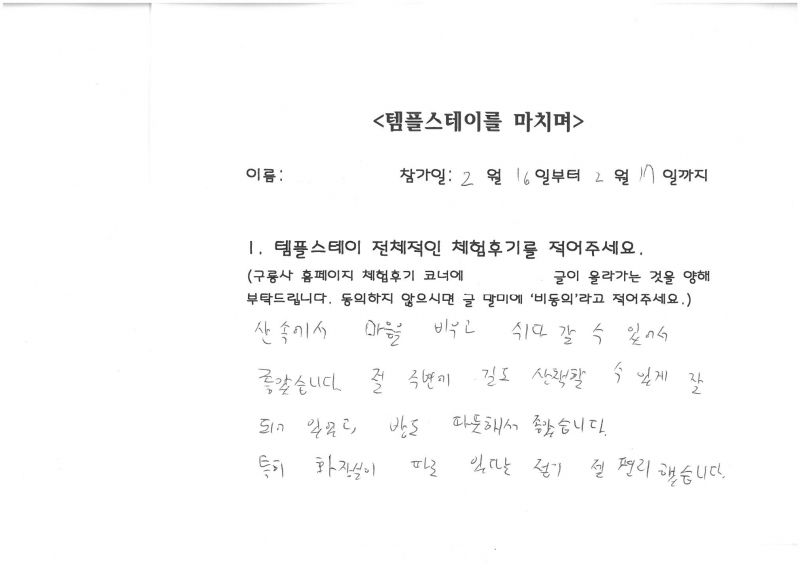 <템플스테이를 마치며>
이름: 참가일: 2 월 16 일부터 2 월 17 일까지
1. 템플스테이 전체적인 체험후기를 적어주세요.
(구룡사 홈페이지 체험후기 코너에 글이 올라가는 것을 양해
부탁드립니다. 동의하지 않으시면 글 말미에 '비동의'라고 적어주세요.)
산 속에서 마음을 비우고 쉬다 갈 수 있어서
좋았습니다. 절 주변에 길도 산책할 수 있게 잘
되어 있었고, 방도 따뜻해서 좋았습니다.
특히 화장실이 따로 있다는 점이 젤 편리했습니다.